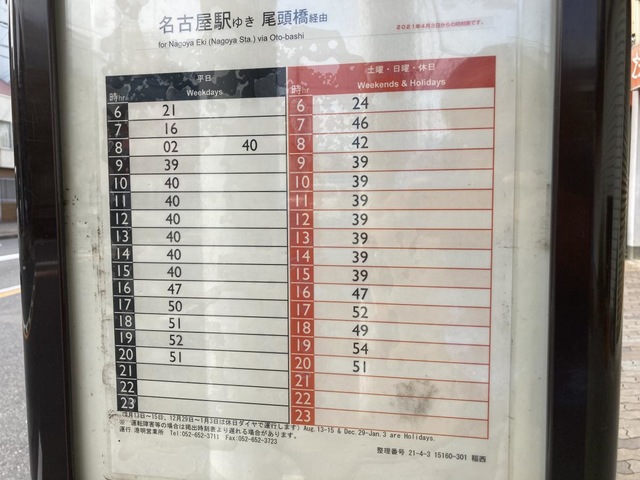 名古屋駅ゆき 尾頭橋経由
for Nagoya Eki (Nagoya Sta.) via Oto-bashi
2021年4月3日からの時刻表です。
平日 土曜・日曜・休日
時hr. Weekdays 時hr. Weekends & Holidays
6 21 6 24
7 16 7 46
8 02 40 8 42
9 39 9 39
10 40 10 39
11 40 11 39
12 40 12 39
13 40 13 39
14 40 14 39
15 40 15 39
16 47 16 47
17 50 17 52
18 51 18 49
19 52 19 54
20 51 20 51
21 21
22 22
23 23
8月13日～15日、12月29日～1月3日は休日ダイヤで運行します) Aug.13-15 & Dec.29-Jan.3 are Holidays.
※ 運転障害等の場合は掲出時刻表より遅れる場合があります。
運行 港明営業所 Tel:052-652-3711 Fax:052-652-3723
整理番号 21-4-3 15160-301 稲西